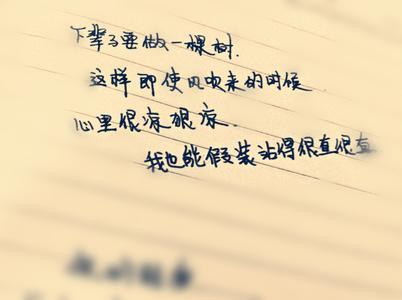 下辈子要做一棵树.
这样即使风吹来的时候
心里很凉很凉..
我也能假装站得很直很直